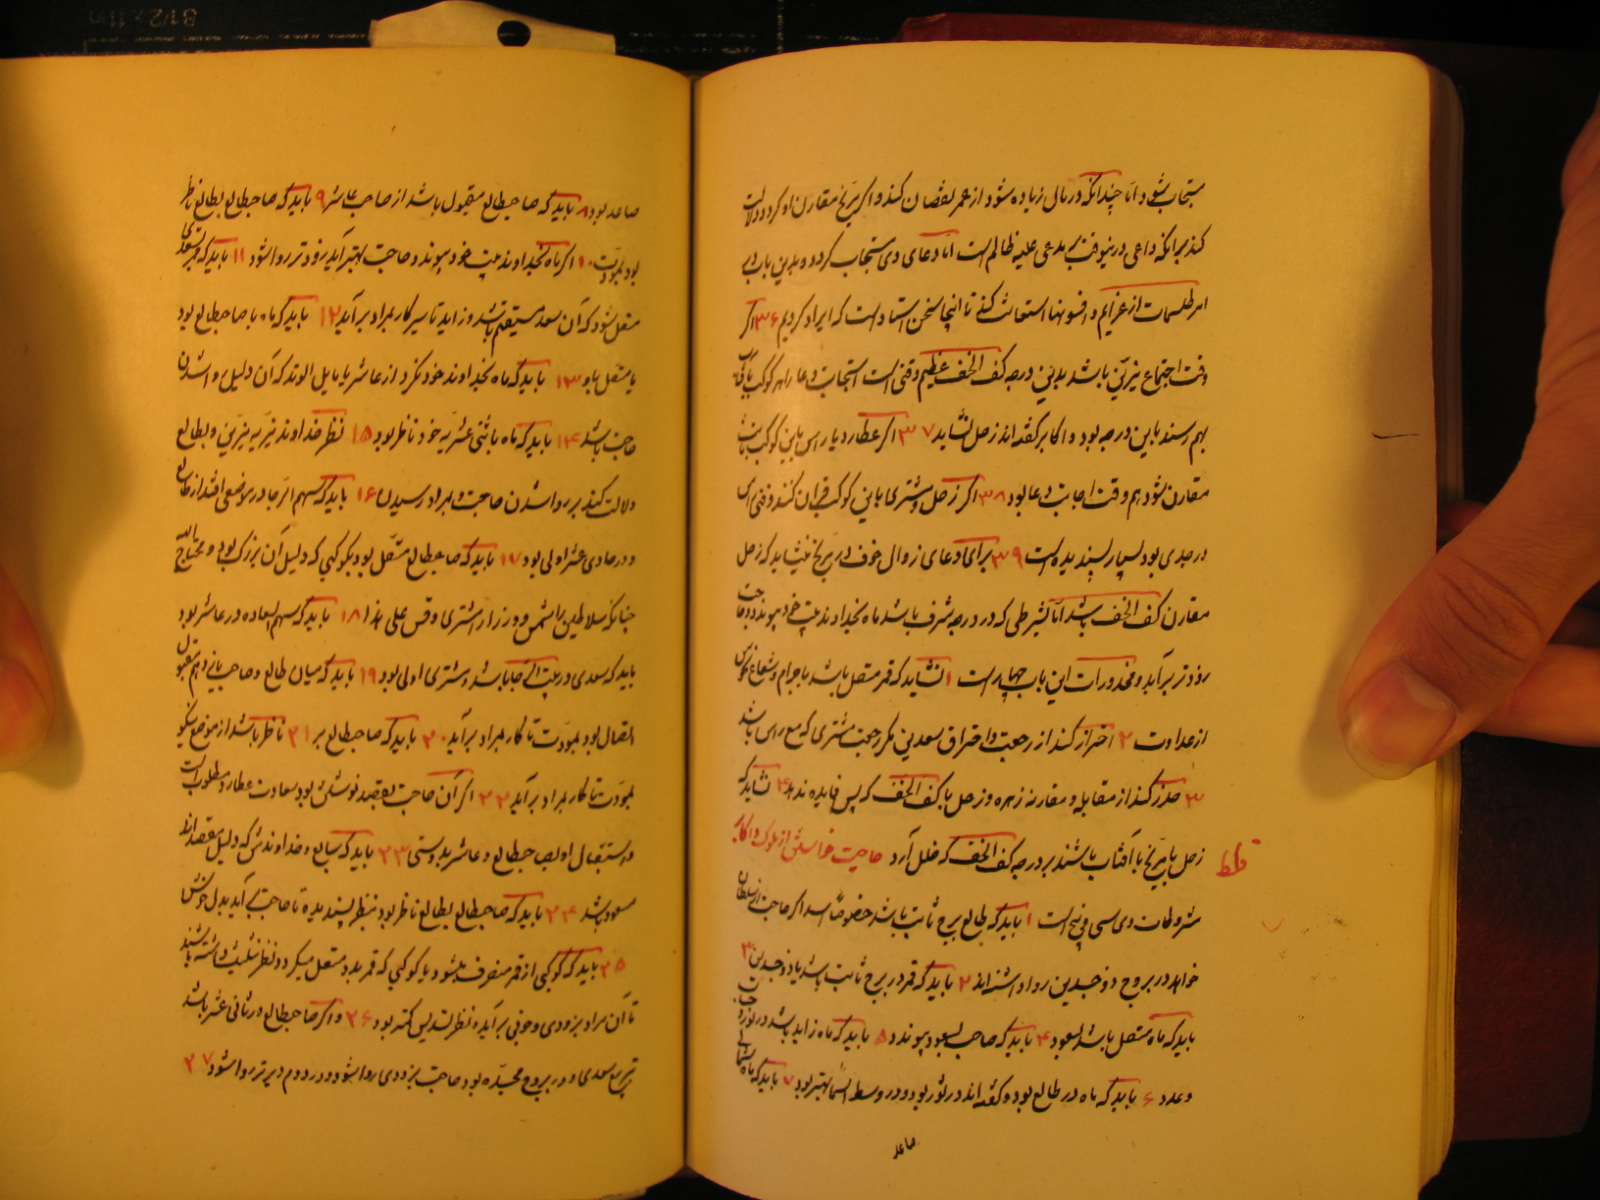 مستجاب شود و اما چندانکه در مال زیاده شود از عمر نقصان کند و اگر مریخ مقارن او کردد دلالت
کند بر آنکه داعی درینوقت بر مدعی علیه ظالم است اما دعای وی مستجاب کردد و بدین باب در
امر طلسمات از عزایم و افسونها استعانت کنند تا اینجا سخن استاد است که ایراد کردیم ۳۶ اگر
وقت اجتماع نیرین باشد بدین درجه کف الخضیب عظیم وقتی است استجابت دعا را و هر کوکب
بهم رسند باین درجه بود و اکابر گفته اند زحل نشاید ۳۷ اگر عطارد یا راس باین کوکب
مقارن شود هم وقت اجابت دعا بود ۳۸ اگر زحل و مشتری باین کوکب قران کنند وقتی
در جدی بود بسیار پسندیده است ۳۹ برای دعای زوال خوف در مریخ نشاید که زحل
مقارن کف الخضیب باشد اما بشرطی که در درجه شرف باشد ماه بخداوند بیت خود پیوندد حاجت
زودتر برآید و محذورات این باب چهار است ۱ نشاید که قمر متصل باشد باجرام و شعاع نحوس
از عداوت ۲ احتراز کنند از رجعت و احتراق سعدین مگر رجعت مشتری که مع راس باشد
۳ حذر کنند از مقابله و مقارنه زهره و زحل با کف الخضیب که پس فایده ندهد ۴ نشاید که
زحل یا مریخ با آفتاب باشند بر درجه کف الخضیب که خلل آرد حاجت خواستن از ملوک و اکابر
مشروطات وی سی و پنج است ۱ باید که طالع برج ثابت باشد خصوصا اسد اگر حاجت از سلطان
خواهد در بروج ذوجسدین روا داشته اند ۲ باید که قمر در برج ثابت باشد یا ذوجسدین ۳
باید که ماه متصل باشد بسعود ۴ باید که صاحب بسعود پیوندد ۵ باید که ماه زاید باشد در نور و
و عدد ۶ باید که ماه در طالع بود و گفته اند در ثور بود و در وسط السما بهتر بود ۷ باید که ماه شمالی
صاعد
صاعد بود ۸ باید که صاحبطالع مقبول باشد از صاحب عاشر ۹ باید که صاحبطالع بطالع ناظر
بود بمودت ۱۰ اگر ماه بخداوند بیت خود پیوندد حاجت بهتر آید و زودتر روا شود ۱۱ باید که قمر بسعدی
متصل شود که آن سعد مستقیم باشد و زاید تا سیر کار بمراد برآید ۱۲ باید که ماه با صاحبطالع بود
یا متصل باو ۱۳ باید که ماه بخداوند خود نگرد از عاشر یا مایل الوتد که آن دلیل روا شدن
حاجت باشد ۱۴ باید که ماه باثنی عشریه خود ناظر بود ۱۵ نظر خداوند نیر به نیرین و بطالع
دلالت کند بر روا شدن حاجت و بمراد رسیدن ۱۶ باید که سهم الرجا در موضعی افتد از طالع
و در حادی عشر اولی بود ۱۷ باید که صاحبطالع متصل بود بکوکبی که دلیل آن بزرگ بود و محتاج الیه
چنانکه سلاطین را شمس و وزرا را مشتری و قس علی هذا ۱۸ باید که سهم السعاده در عاشر بود
باید که سعدی در بیت الرجا باشد و مشتری اولی بود ۱۹ باید که میان طالع و صاحب یازدهم
اتصال بود بمودت تا کار بمراد برآید ۲۰ باید که صاحبطالع بر ۲۱ ناظر باشد از موضع نیکو
بمودت تا کار بمراد برآید ۲۲ اگر آن حاجت بقصد نوشتنی بود سعادت عطارد مطلوب است
و استقبال او بصاحبطالع و عاشر بدوستی ۲۳ باید که سابع و خداوندش که دلیل مقصد اند
مسعود باشد ۲۴ باید که صاحبطالع بطالع ناظر بود بنظر پسندیده تا حاجت برآید بدل خوش
۲۵ باید که کوکبی از قمر منصرف میشود و یا کوکبی که قمر بدو متصل میکردد نظر تثلیث داشته باشند
تا آن مراد بزودی و خوبی برآید و نظر تسدیس کمتر بود ۲۶ و اگر صاحبطالع در ثانی عشر باشد
بتربیع سعدی و در بروج مجسده بود حاجت بزودی روا شود و در دوم دیرتر روا شود ۲۷